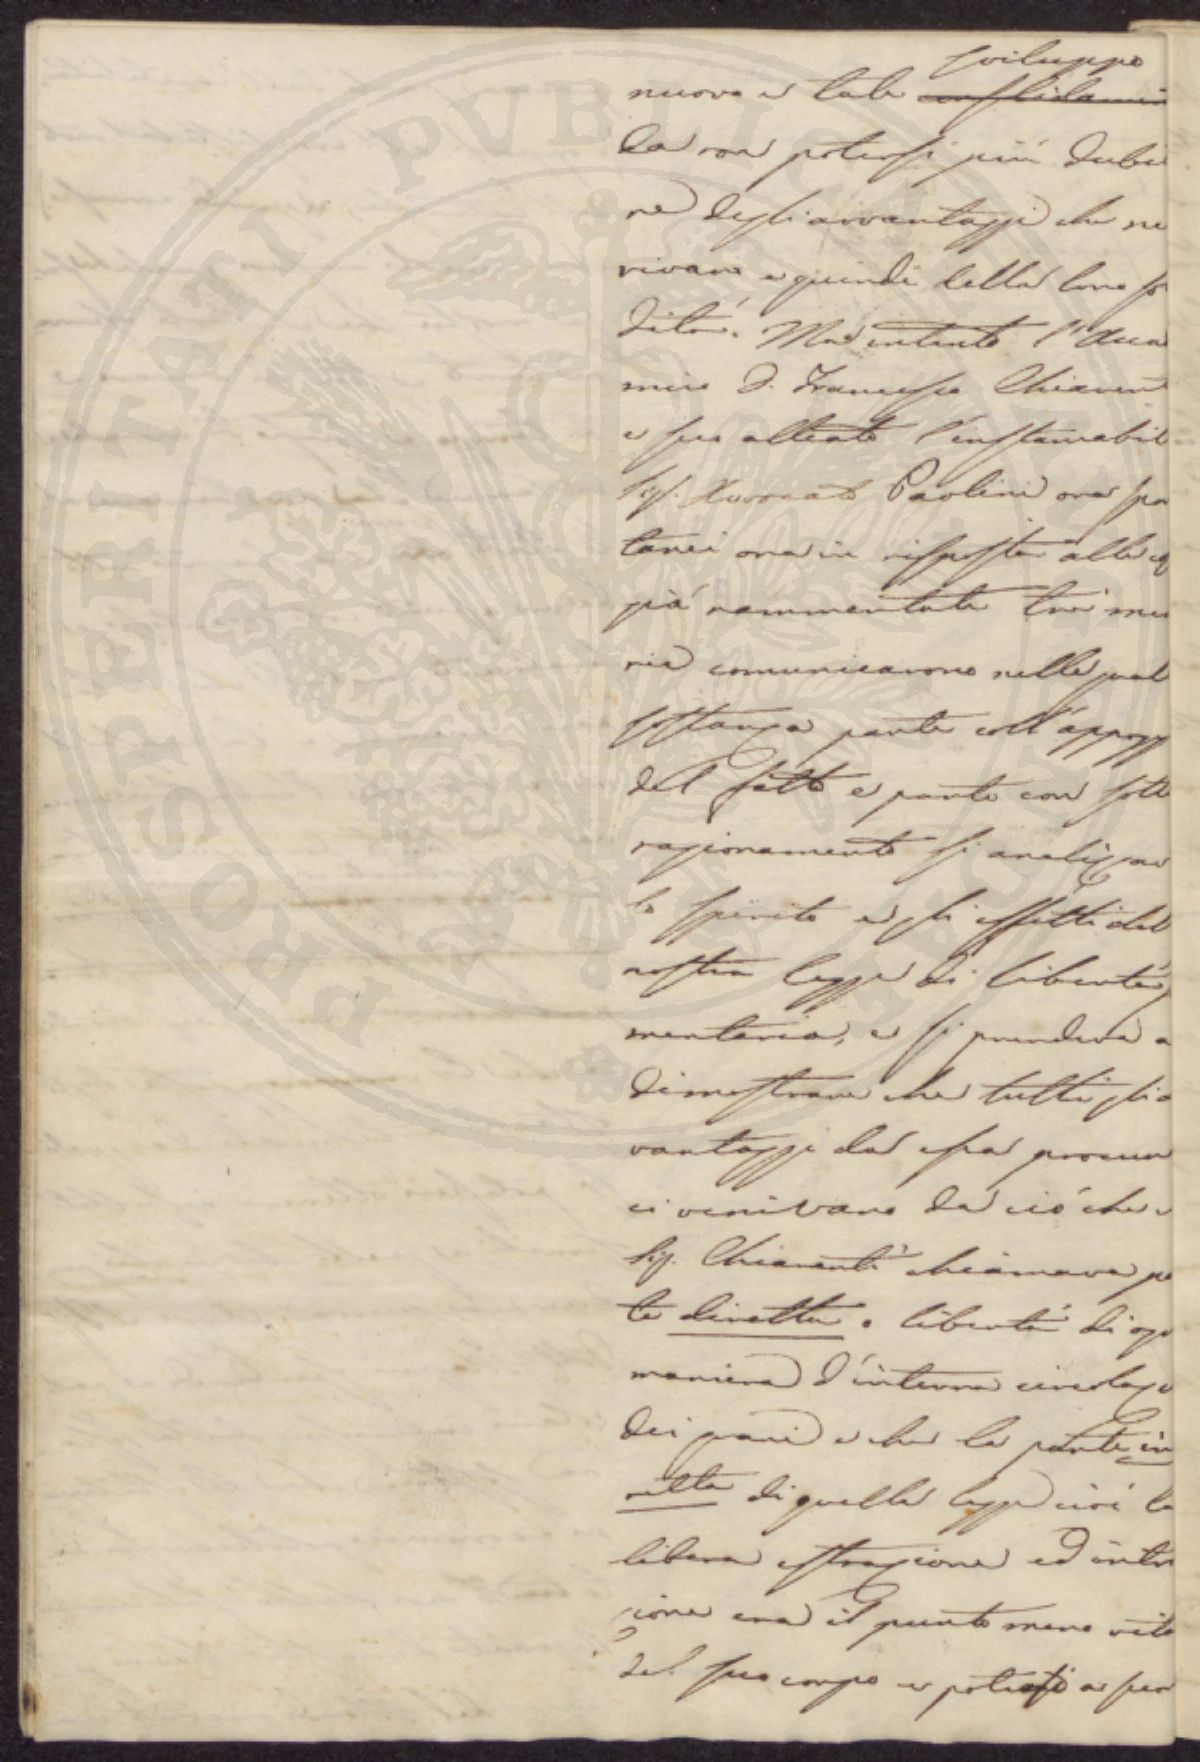 sviluppo
nuovo e tale
da non potersi più dubi
re degli avvantaggi che ne
rivano e quindi della loro so
dità. Ma intanto l'Acca
mico D. Francesco Chiarent
e suo alleato l'instancabil
Sig. Avvocato Paolini ora spo
tanei ora in risposta alle co
già rammentate trè me
rie comunicarono nelle qual
sostanza parte coll'appogg
del fatto e parte con sott
ragionamento si analizzav
lo spirito e gli effetti del
nostra legge di libertà
mentaria, e si prendeva a
dimostrare che tutti gli a
vantaggi da essa procur
ci venivano da ciò che
Sig. Chiarenti chiamava pa
te diretta o libertà di og
maniera d'interna circolazi
dei grani e che la parte in
retta di quella legge cioè la
libera estrazione ed intro
zione era il punto meno vita
del suo corpo e potersi a suo
PROSPERITATI PVBLICAE AVGENDAE